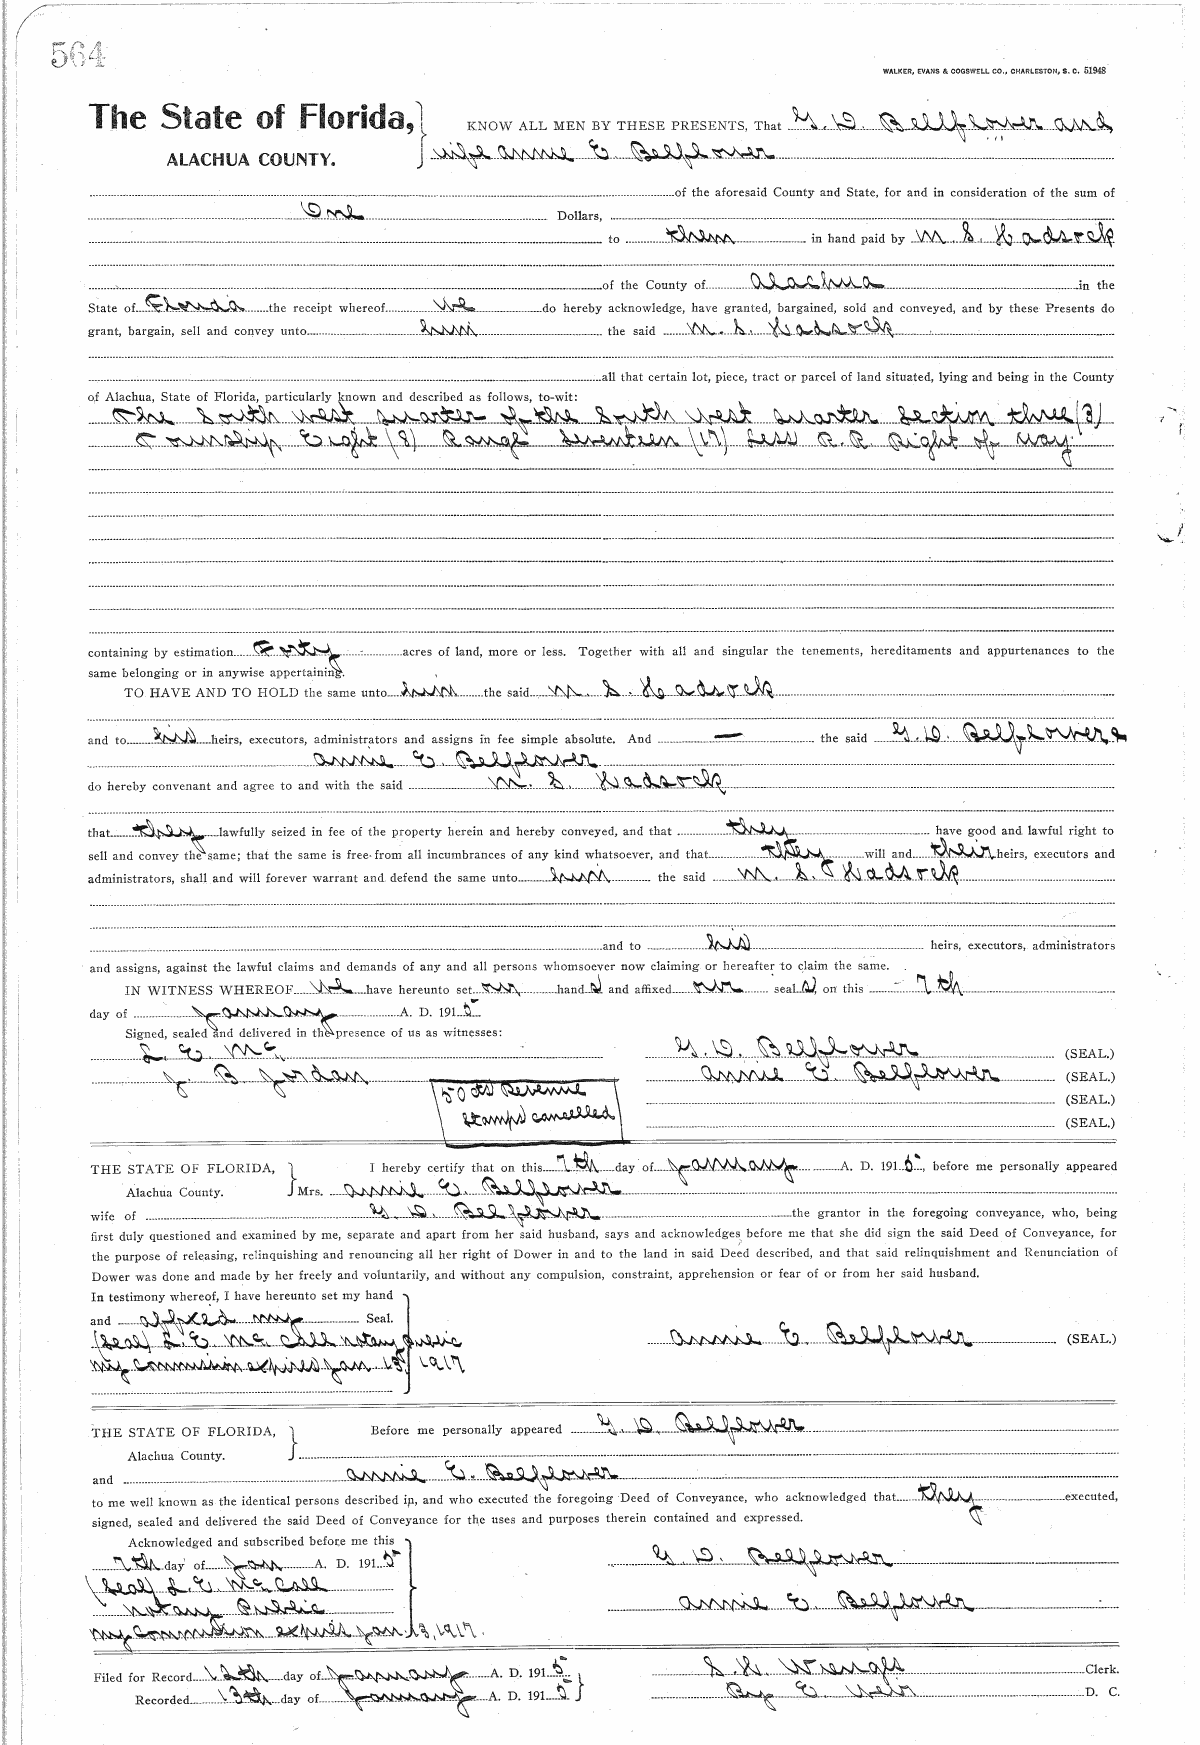 564
WALKER, EVANS & COGSWELL CO., CHARLESTON, S. C. 51948
The State of Florida, KNOW ALL MEN BY THESE PRESENTS, That G. D. Bellflower and
ALACHUA COUNTY. wife Annie E. Belflower
of the aforesaid County and State, for and in consideration of the sum of
One Dollars,
to them in hand paid by M. S. Hadsock
of the County of Alachua in the
State of Florida the receipt whereof we do hereby acknowledge, have granted, bargained, sold and conveyed, and by these Presents do
grant, bargain, sell and convey unto him the said M. S. Hadsock
all that certain lot, piece, tract or parcel of land situated, lying and being in the County
of Alachua, State of Florida, particularly known and described as follows, to-wit:
The South West quarter of the South West quarter Section three (3)
Township Eight (8) Range Seventeen (17) Less R.R. Right of Way.
containing by estimation Forty acres of land, more or less. Together with all and singular the tenements, hereditaments and appurtenances to the
same belonging or in anywise appertaining.
TO HAVE AND TO HOLD the same unto him the said M. S. Hadsock
and to his heirs, executors, administrators and assigns in fee simple absolute. And — the said G. D. Belflower &
Annie E. Belflower
do hereby convenant and agree to and with the said M. S. Hadsock
that they lawfully seized in fee of the property herein and hereby conveyed, and that they have good and lawful right to
sell and convey the same; that the same is free from all incumbrances of any kind whatsoever, and that they will and their heirs, executors and
administrators, shall and will forever warrant and defend the same unto him the said M. S. Hadsock
and to his heirs, executors, administrators
and assigns, against the lawful claims and demands of any and all persons whomsoever now claiming or hereafter to claim the same.
IN WITNESS WHEREOF we have hereunto set our hand s and affixed our seal s on this 7th
day of January A. D. 1915
Signed, sealed and delivered in the presence of us as witnesses:
L. E. Mc G. D. Belflower (SEAL.)
J. B. Jordan Annie E. Belflower (SEAL.)
50 cts Revenue (SEAL.)
stamps cancelled (SEAL.)
THE STATE OF FLORIDA, I hereby certify that on this 7th day of January A. D. 1915, before me personally appeared
Alachua County. Mrs. Annie E. Belflower
wife of G. D. Belflower the grantor in the foregoing conveyance, who, being
first duly questioned and examined by me, separate and apart from her said husband, says and acknowledges before me that she did sign the said Deed of Conveyance, for
the purpose of releasing, relinquishing and renouncing all her right of Dower in and to the land in said Deed described, and that said relinquishment and Renunciation of
Dower was done and made by her freely and voluntarily, and without any compulsion, constraint, apprehension or fear of or from her said husband.
In testimony whereof, I have hereunto set my hand
and affixed my Seal.
(Seal) L. E. McCall notary public Annie E. Belflower (SEAL.)
my commission expires Jan 13, 1917
THE STATE OF FLORIDA, Before me personally appeared G. D. Belflower
Alachua County.
and Annie E. Belflower
to me well known as the identical persons described in, and who executed the foregoing Deed of Conveyance, who acknowledged that they executed,
signed, sealed and delivered the said Deed of Conveyance for the uses and purposes therein contained and expressed.
Acknowledged and subscribed before me this
7th day of Jan A. D. 1915 G. D. Belflower
(Seal) L. E. McCall
Notary Public Annie E. Belflower
my commission expires Jan 13, 1917.
Filed for Record 12th day of January A. D. 1915 S. H. Wienges Clerk.
Recorded 13th day of January A. D. 1915 By E. Weir D. C.